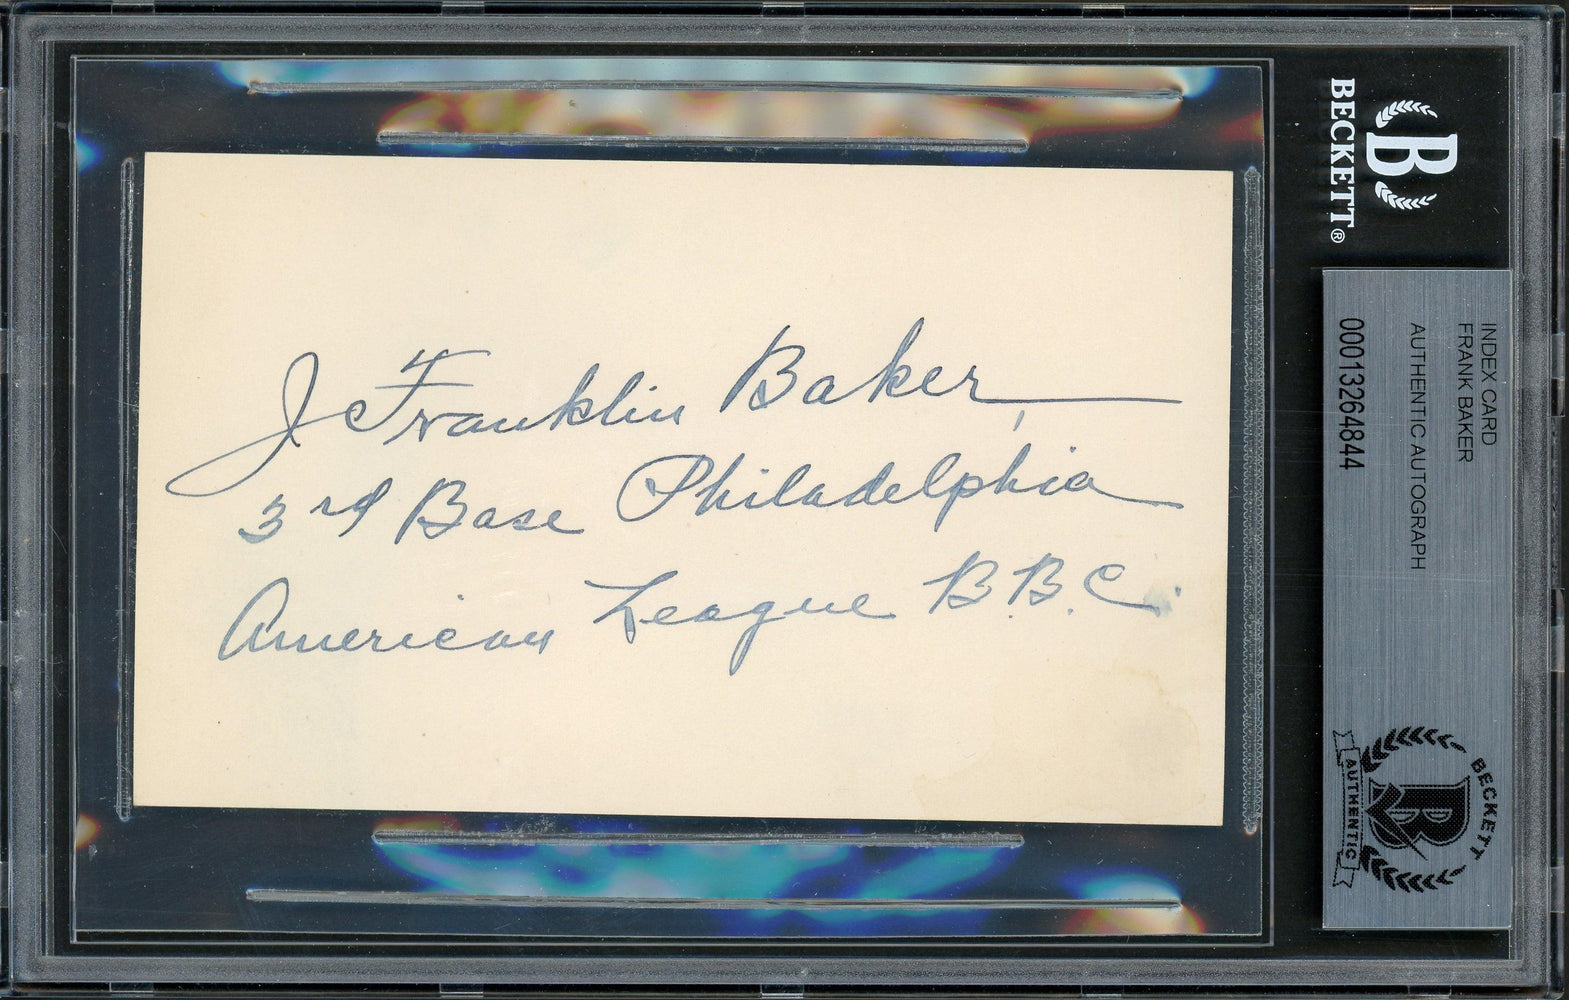 J Franklin Baker,
3rd Base Philadelphia
American League B.B.C.
B
BECKETT®
INDEX CARD
FRANK BAKER
AUTHENTIC AUTOGRAPH
00013264844
BECKETT
B
AUTHENTIC